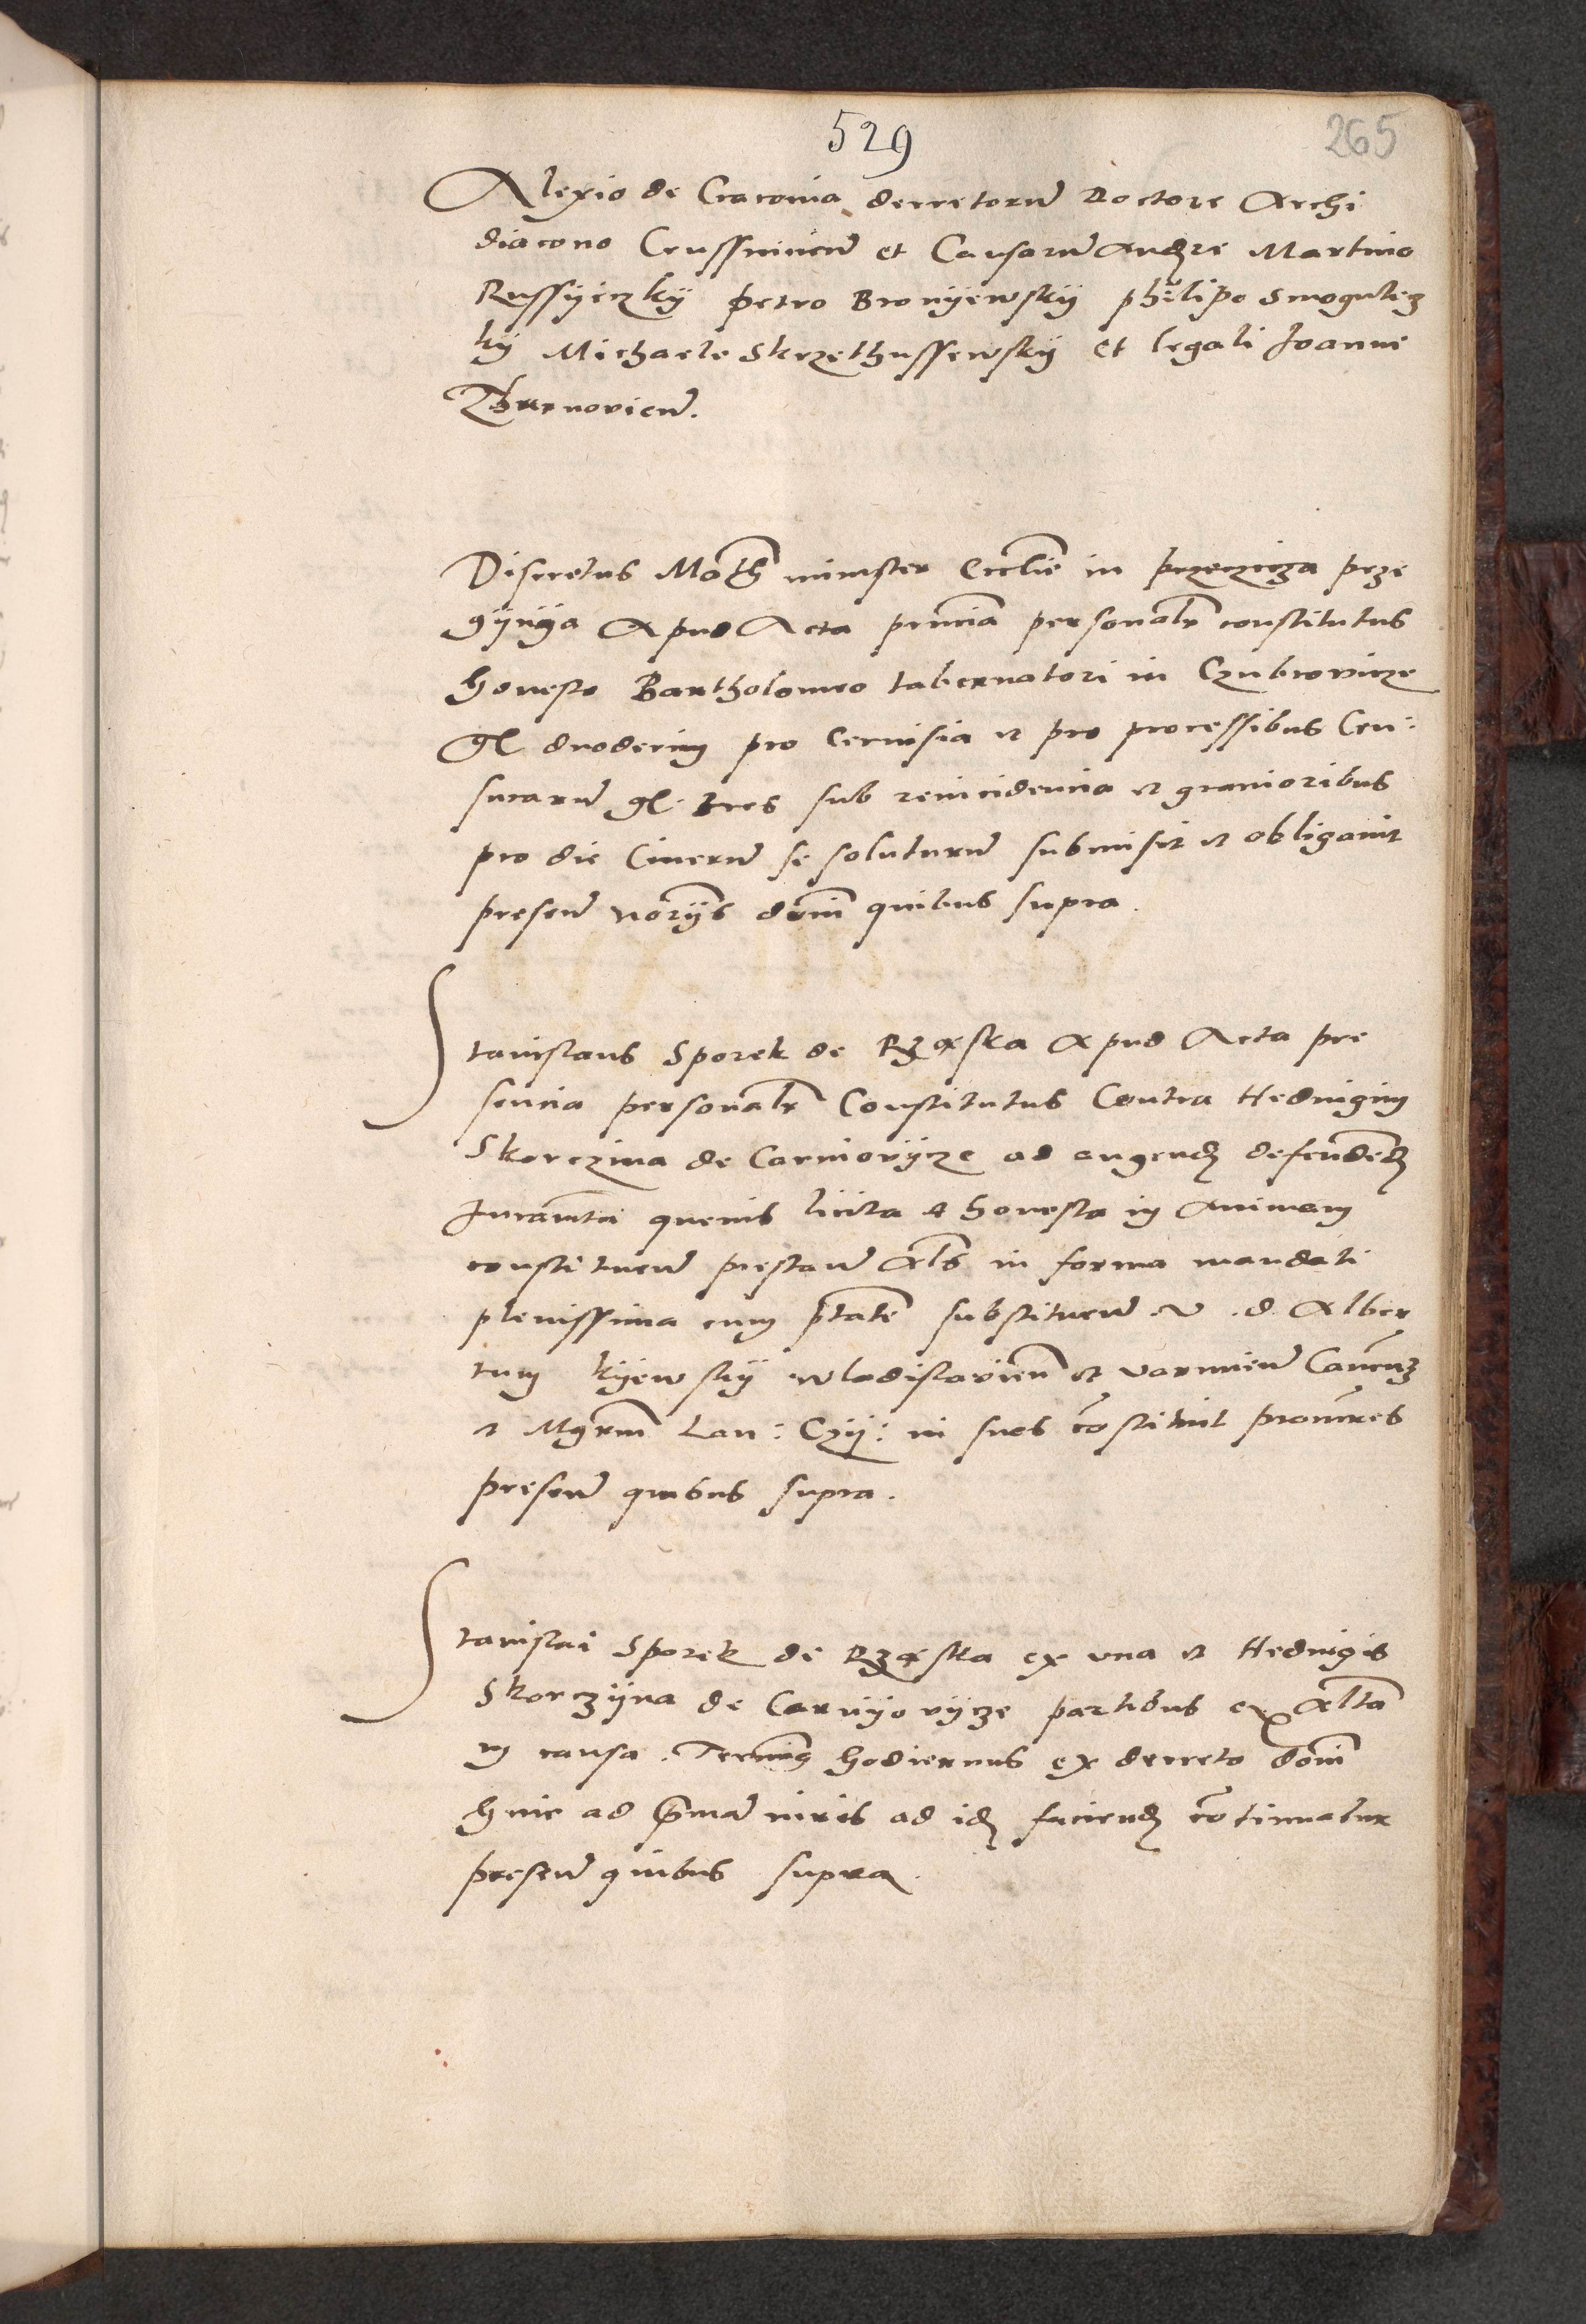 529
265
Alexio de Cracovia decretorum Doctore Archi
diacono Crussvicien et Causarum Audre Martino
Russyeczky Petro Bronyewsky Philipo Smogulecz
ky Michaele Skrzethussewsky et legali Joanne
Thrnovien.
Discretus Math minister Ecclie in przeczicza prze
gynya Apud Acta pncia personalr constitutus
honesto Bartholomeo tabernatori in Czubrovicze
gl duodecim pro Cervisia et pro processibus Cen:
surarum gl. tres sub reincidencia et gravioribus
pro die Cinerum se soluturum submisit et obligavit
presen norys domi quibus supra.
Stanislaus Sporek de Rząska Apud Acta pre
sencia personalr Constitutus Contra Hedvigim
Skorczina de Carniovycze ad augend defendend
Juramta quevis licita et honesta in Animam
constituen prestan Als in forma mandati
plenissima cum ptate substituen v. d. Alber
tum kyewsky wladislavien et varmien Cancum
et Mgrm Lau: Czy: in suos costituit procures
presen quibus supra.
Stanislai Sporek de Rząska ex una et Hedvigis
Skorczyna de Carnyovycze partibus ex Alta
in causa. Terminus hodiernus ex decreto domi
hinc ad pmam iuris ad id faciend cotinuatur
presen quibus supra.